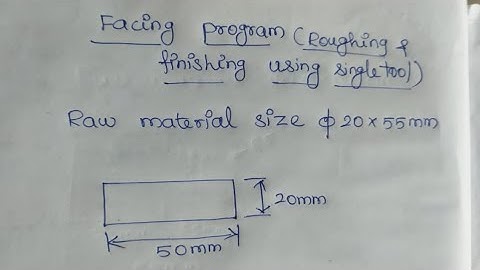 Facing program (Roughing &
finishing using single tool)
Raw material size ϕ 20 x 55mm
20mm
50mm